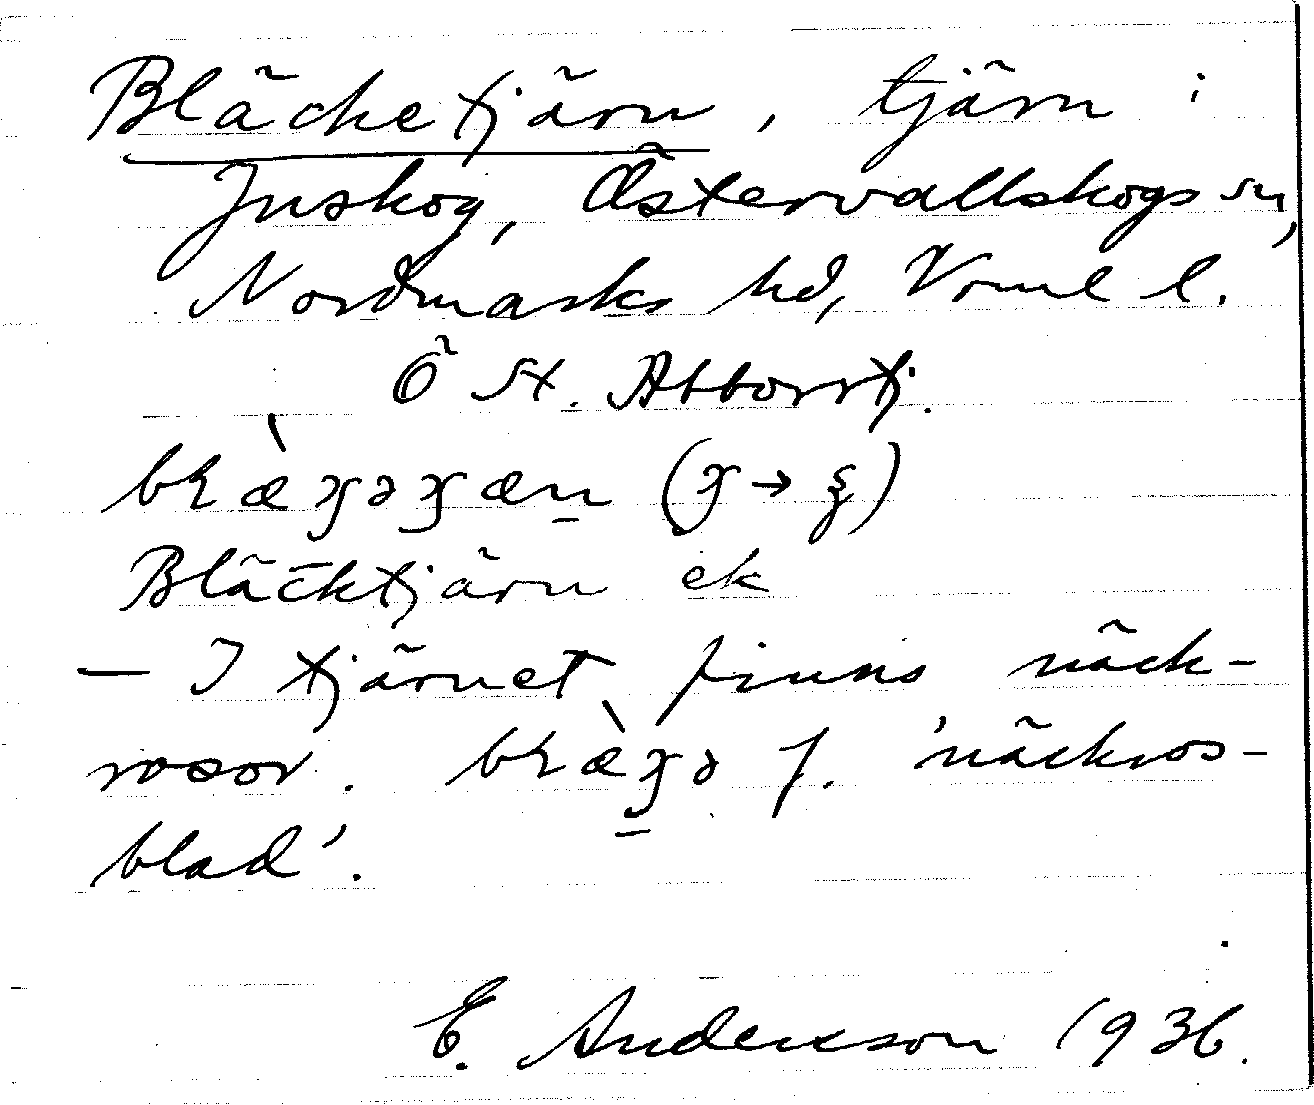 Bläcketjärn, tjärn i
Juskog, Östervallskogs sn,
Nordmarks hd, Vrml l.
Ö St. Abborrtj.
Bläcktjärn ek
— I tjärnet finns näck-
rosor. f. 'näckros-
blad'.
E. Anderson 1936.